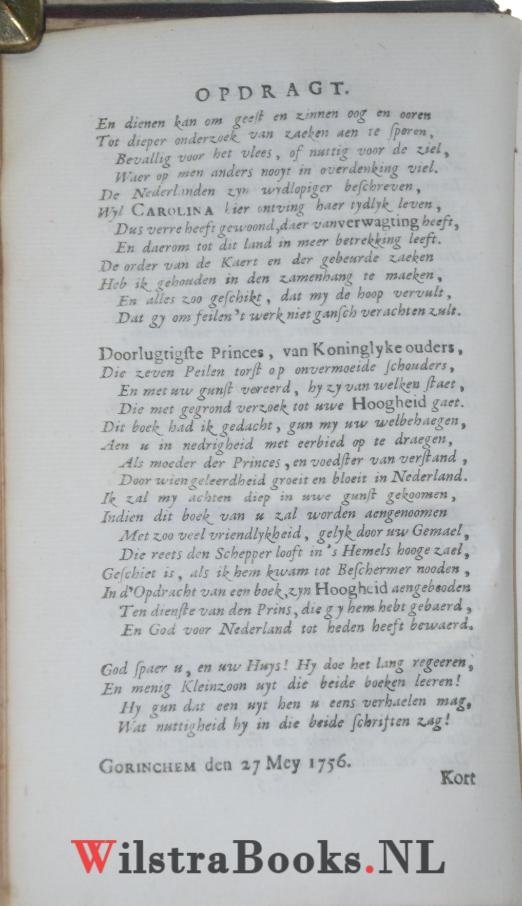 OPDRAGT.
En dienen kan om geeſt en zinnen oog en ooren
Tot dieper onderzoek van zaeken aen te ſporen,
Bevallig voor het vlees, of nuttig voor de ziel,
Waer op men anders nooyt in overdenking viel.
De Nederlanden zyn wydlopiger beſchreven,
Wyl CAROLINA hier ontving haer tydlyk leven,
Dus verre heeft gewoond, daer van verwagting heeft,
En daerom tot dit land in meer betrekking leeft.
De order van de Kaert en der gebeurde zaeken
Heb ik gehouden in den zamenhang te maeken,
En alles zoo geſchikt, dat my de hoop vervult,
Dat gy om feilen 't werk niet ganſch verachten zult.
Doorlugtigſte Princes, van Koninglyke ouders,
Die zeven Peilen torſt op onvermoeide ſchouders,
En met uw gunſt vereerd, hy zy van welken ſtaet,
Die met gegrond verzoek tot uwe Hoogheid gaet.
Dit boek had ik gedacht, gun my uw welbehaegen,
Aen u in nedrigheid met eerbied op te draegen,
Als moeder der Princes, en voedſter van verſtand,
Door wien geleerdheid groeit en bloeit in Nederland.
Ik zal my achten diep in uwe gunſt gekoomen,
Indien dit boek van u zal worden aengenoomen
Met zoo veel vriendlykheid, gelyk door uw Gemael,
Die reets den Schepper looft in 's Hemels hooge zael,
Geſchiet is, als ik hem kwam tot Beſchermer nooden,
In d'Opdracht van een boek, zyn Hoogheid aengebooden
Ten dienſte van den Prins, die gy hem hebt gebaerd,
En God voor Nederland tot heden heeft bewaerd.
God ſpaer u, en uw Huys! Hy doe het lang regeeren,
En menig Kleinzoon uyt die beide boeken leeren!
Hy gun dat een uyt hen u eens verhaelen mag,
Wat nuttigheid hy in die beide ſchriften zag!
GORINCHEM den 27 Mey 1756.
Kort
WilstraBooks.NL